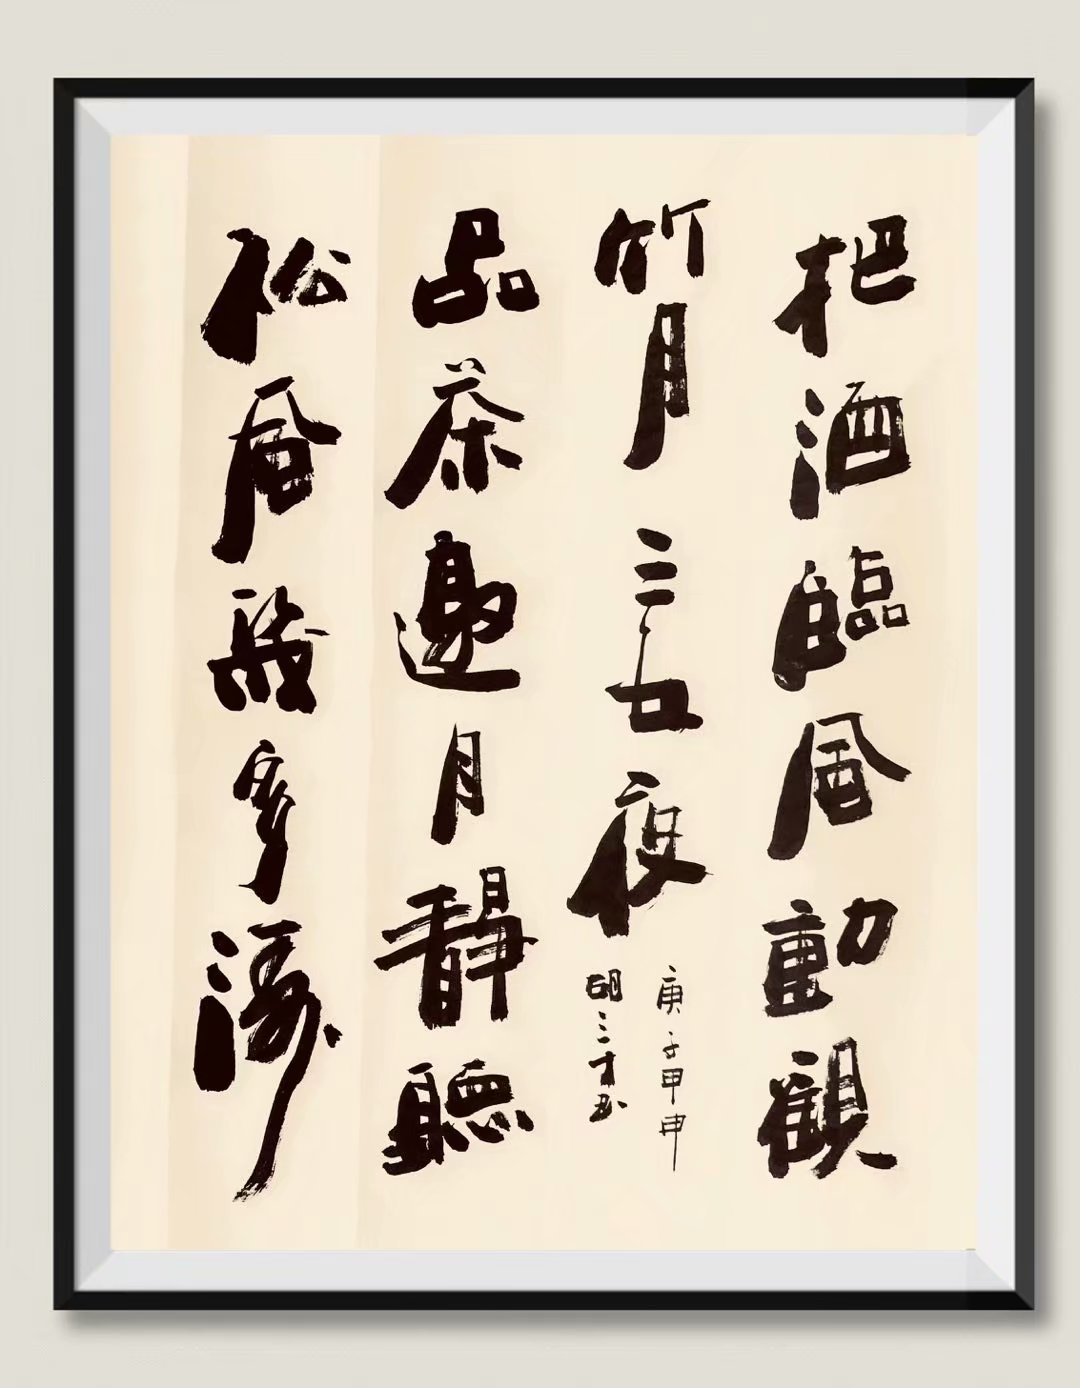 把酒臨風動觀
竹月三五夜
庚子甲申
胡三才书
品茶邀月靜聽
松風幾多濤